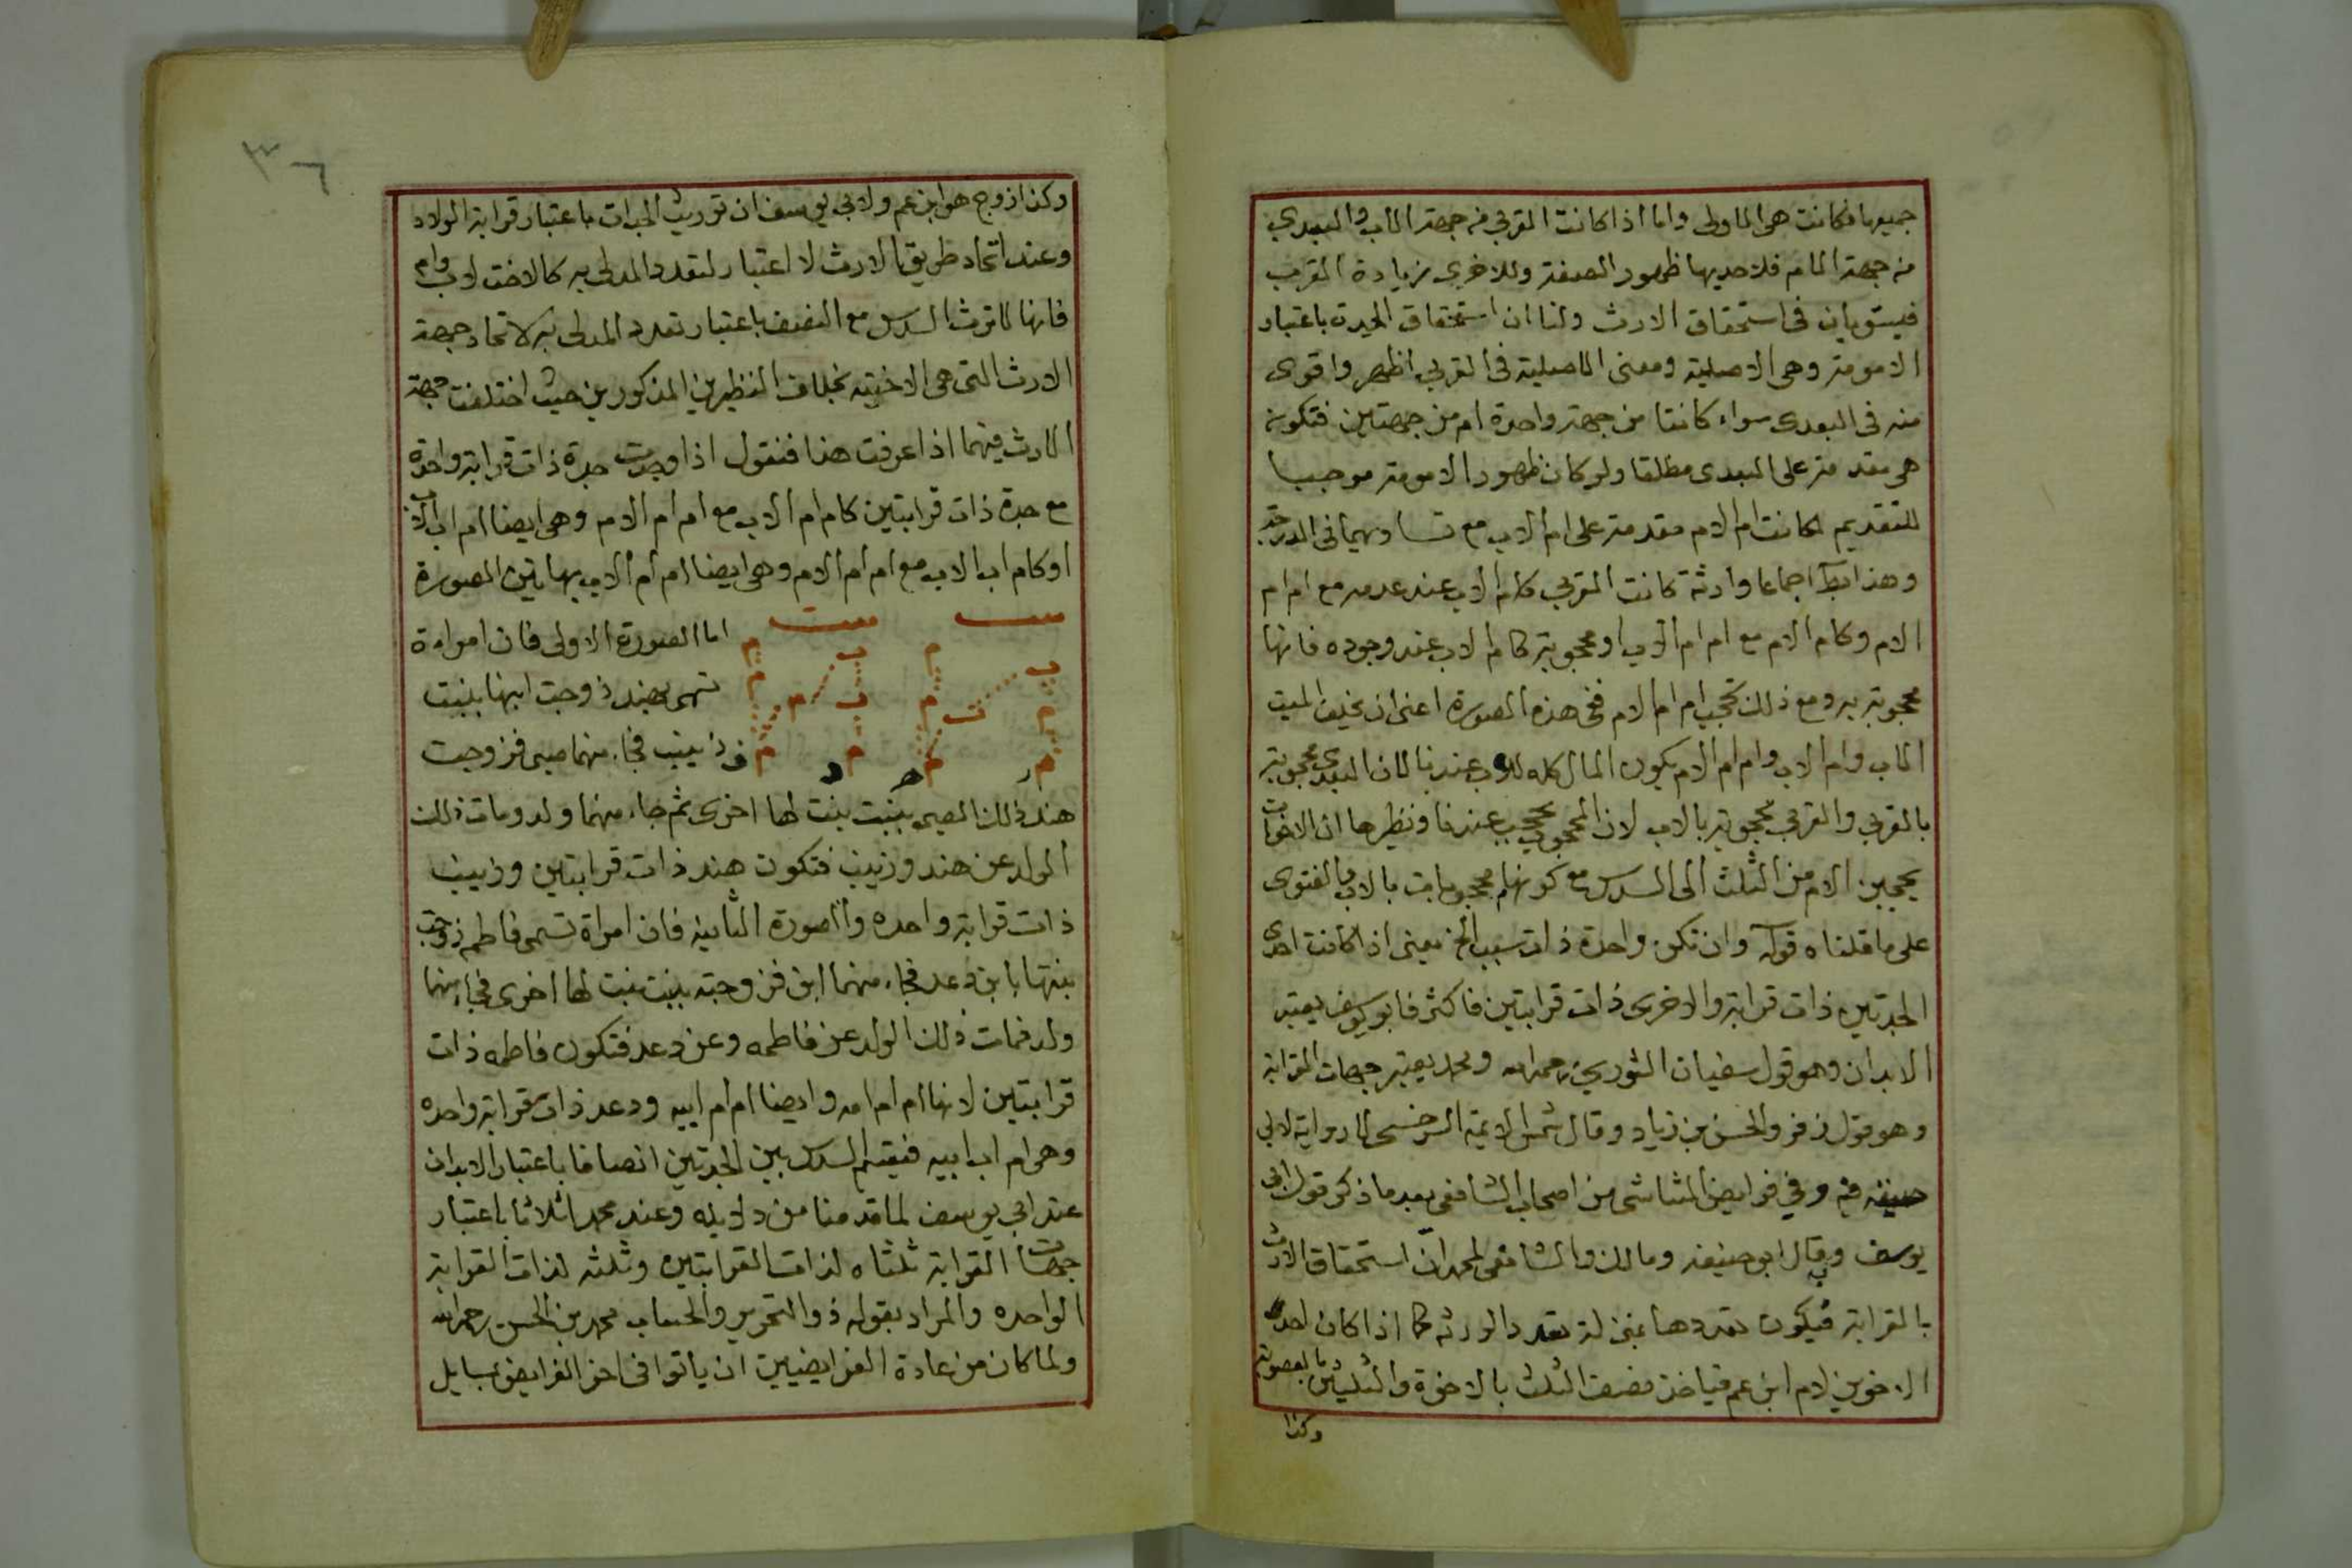 جميعها فكانت هى الاولى واما اذا كانت القربى من جهة الاب والبعدى
من جهة الام فلاحديها ظهور الصفة وللاخرى زيادة القرب
فيستويان فى استحقاق الارث ولنا ان استحقاق الجدة باعتبار
الامومة وهى الاصلية ومعنى الاصلية فى القربى اظهر واقوى
منه فى البعدى سواء كانتا من جهة واحدة ام من جهتين فتكون
هى مقدمة على البعدى مطلقا ولو كان ظهور الامومة موجبا
للتقديم لكانت ام الام مقدمة على ام الاب مع تساويهما فى الدرجة
وهذا اجماعا وارثة كانت القربى كام الاب عند عدمه مع ام ام
الام وكام الام مع ام ام الاب او محجوبة كام الاب عند وجوده فانها
محجوبة به ومع ذلك تحجب ام ام الام ففى هذه الصورة اعنى ان يخلف الميت
الاب وام الاب وام ام الام يكون المال كله للاب عندنا لان البعدى محجوبة
بالقربى والقربى محجوبة بالاب لان المحجوب يحجب عندنا ونظيرها ان الاخوات
يحجبن الام من الثلث الى السدس مع كونهم محجوبات بالاب والفتوى
على ما قلناه قوله وان تكن واحدة ذات سبب الخ يعنى اذا كانت احدى
الجدتين ذات قرابة والاخرى ذات قرابتين فاكثر فابو يوسف يعتبر
الابدان وهو قول سفيان الثورى رحمه الله ومحمد يعتبر جهات القرابة
وهو قول زفر والحسن بن زياد وقال شمس الائمة السرخسى لا رواية لابى
حنيفة فيه وفي فرايض الشاشى من اصحاب الشافعى بعد ما ذكر قول ابى
يوسف وبه قال ابو حنيفة ومالك والشافعى لمحمد ان استحقاق الارث
بالقرابة فيكون تعددها بمنزلة تعدد الورثة كما اذا كان احد
الاخوين لام ابن عم فياخذ نصف الثلث بالاخوة والثلثين بالعصوبة
وكذا
٣٦
وكذا زوج هو ابن عم ولابى يوسف ان توريث الجدات باعتبار قرابة الولاد
وعند اتحاد طريق الارث لا اعتبار لتعدد المدلى به كالاخت لاب وام
فانها لا ترث السدس مع النصف باعتبار تعدد المدلى به لاتحاد جهة
الارث التى هى الاختية بخلاف النظيرين المذكورين حيث اختلفت جهة
الارث فيهما اذا عرفت هذا فنقول اذا وجدت جدة ذات قرابة واحدة
مع جدة ذات قرابتين كام ام الاب مع ام ام الام وهى ايضا ام اب الاب
او كام اب الاب مع ام ام الام وهى ايضا ام ام الاب بهاتين الصورة
اما الصورة الاولى فان امراءة
تسمى بهند زوجت ابنها ببنت
زينب فجاء منهما صبى فزوجت
هند ذلك الصبى ببنت بنت لها اخرى ثم جاء منهما ولد ومات ذلك
الولد عن هند وزينب فتكون هند ذات قرابتين وزينب
ذات قرابة واحده واما صورة الثانيه فان امراة تسمى فاطمه زوجت
بنتها بابن دعد فجاء منهما ابن فزوجته ببنت بنت لها اخرى فجاء منهما
ولد فمات ذلك الولد عن فاطمه وعن دعد فتكون فاطمه ذات
قرابتين لانها ام ام امه وايضا ام ام ابيه ودعد ذات قرابة واحده
وهى ام اب ابيه فيقسم السدس بين الجدتين انصافا باعتبار الابدان
عند ابى يوسف لما قدمنا من دليله وعند محمد اثلاثا باعتبار
جهات القرابة ثلثاه لذات القرابتين وثلثه لذات القرابة
الواحده والمراد بقوله ذو التحرير والحساب محمد بن الحسن رحمه الله
ولما كان من عادة الفرايضيين ان ياتوا فى اخر الفرايض بمسايل